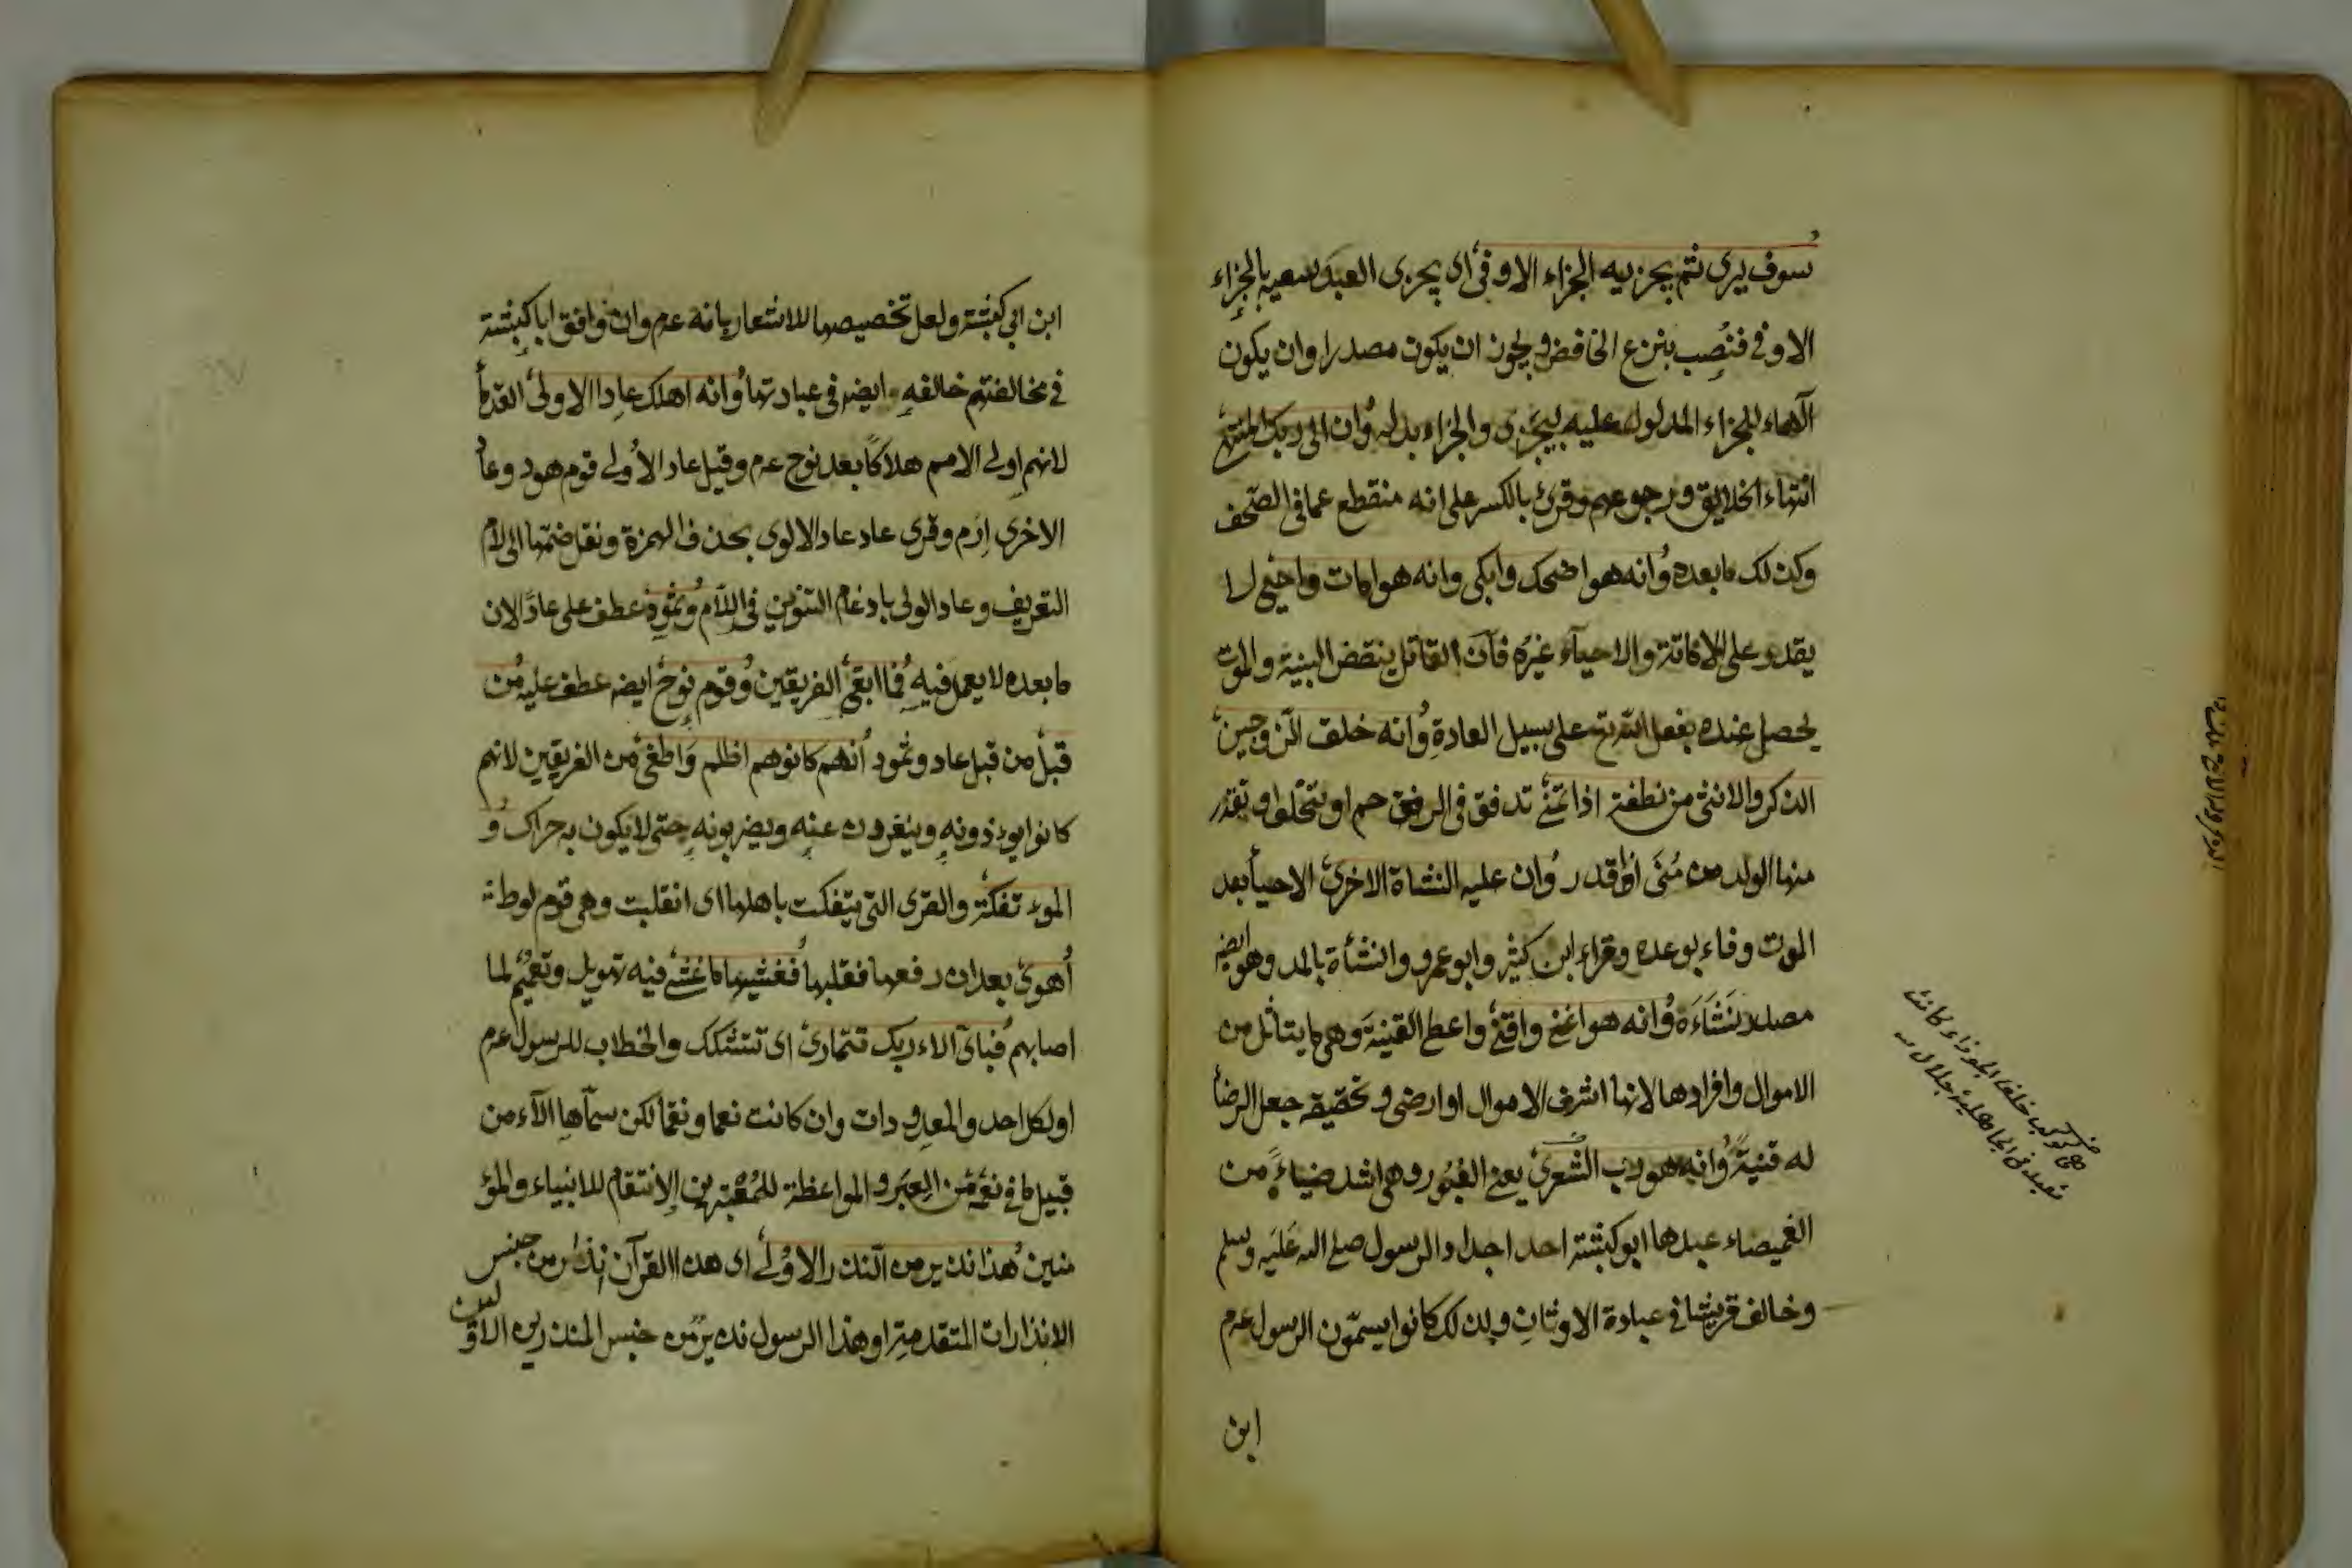 سوف يرى ثم يجزيه الجزاء الاوفى اى يجزى العبد سعيه بالجزاء
الاوفى فنُصِب بنزع الخافض ويجوز ان يكون مصدرا وان يكون
الهاء للجزاء المدلول عليه بيجزى والجزاء بدله وان الى ربك المنتهى
انتهاء الخلايق ورجوعهم وقرئ بالكسر على انه منقطع عما فى الصحف
وكذلك ما بعده وانه هو اضحك وابكى وانه هو امات واحيى لا
يقدر على الاماتة والاحياء غيره فان القاتل ينقض البنية والموت
يحصل عنده بفعل الله تع على سبيل العادة وانه خلق الزوجين
الذكر والانثى من نطفة اذا تمنى تدفق فى الرحم او تخلق او تقدر
منها الولد من مُنَى اذا قدر وان عليه النشاة الاخرى الاحياء بعد
الموت وفاء بوعده وقراء ابن كثير وابو عمرو والنشأة بالمد وهو ايضه
مصدر نَشَاءَة وانه هو اغنى واقنى واعطى القنية وهى ما يتاثل من
الاموال وافرادها لانها اشرف الاموال او ارضى وتحقيقه جعل الرضا
له قنيةً وانه هو رب الشعرى يعنى العَبُور وهى اشد ضياءً من
الغميصاء عبدها ابو كبشة احد اجداد الرسول صلى الله عليه وسلم
وخالف قريشا فى عبادة الاوثان ولذلك كانوا يسمّون الرسول عم
ابن
هى كوكب خلف الجوزاء كانت
تعبد فى الجاهلية جلالين
ابن ابى كبشة ولعل تخصيصها للاشعار بانه عم وان وافق ابا كبشة
فى مخالفتهم خالفه ايضه فى عبادتها وانه اهلك عادا الاولى القدماء
لانهم اولى الامم هلاكًا بعد نوح عم وقيل عاد الأولى قوم هود وعاد
الاخرى اِرَم وقرى عاد عاد الالوى بحذف الهمزة ونقل ضمتها الى لام
التعريف وعاد الولى بادغام التنوين فى اللام وثمود عطف على عادًا لان
ما بعده لا يعمل فيه فما ابقى الفريقين وقوم نوح ايضه عطف عليه من
قبل من قبل عاد وثمود انهم كانوا هم اظلم واطغى من الفريقين لانهم
كانوا يوءذونه وينفرون عنه ويضربونه حتى لا يكون به حراك و
الموءتفكة والقرى التى يتفكت باهلها اى انقلبت وهى قوم لوط
أهوى بعد ان رفعها فقلبها فغشيها ما غشى فيه تهويل وتعميم لما
اصابهم فباى الاء ربك تتمارى اى تتشكك والخطاب للرسول عم
او لكل احد والمعدودات وان كانت نعما ونقما لكن سمّاها الآء من
قبيل ما فى نقمه من العِبَر والمواعظة للمُعْتَبرين والانتقام للانبياء والمؤ
منين هذا نذير من النذر الاولى اى هذا القرآن انذار من جنس
الانذارات المتقدمة او هذا الرسول نذير من جنس المنذرين الاولين